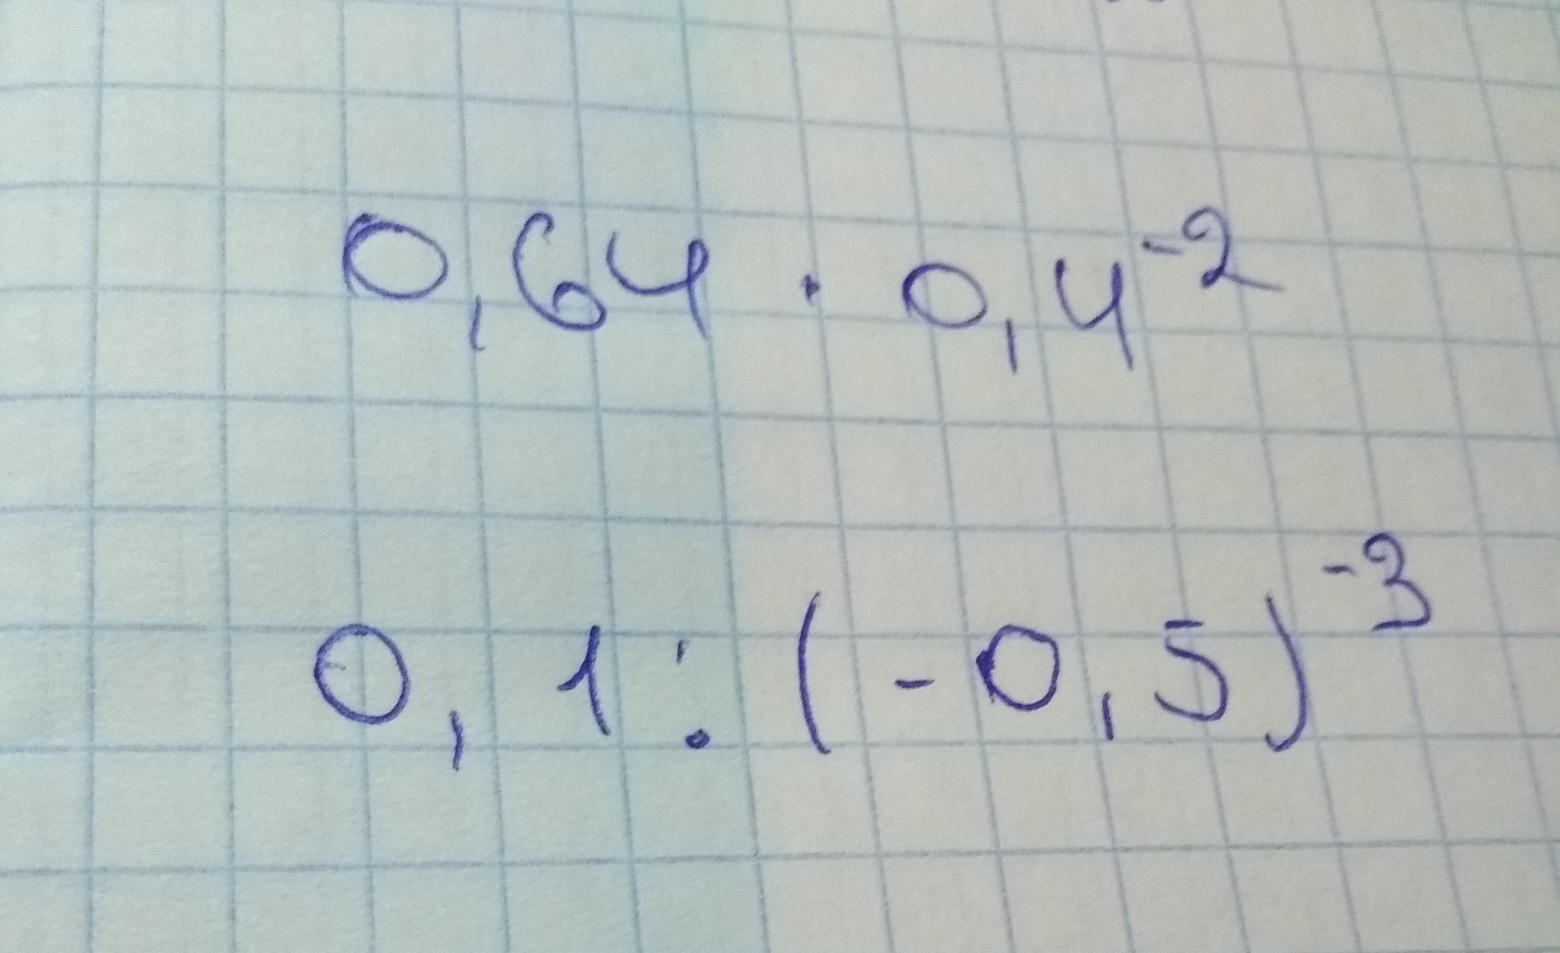 0,64 · 0,4⁻²
0,1 : (-0,5)⁻³